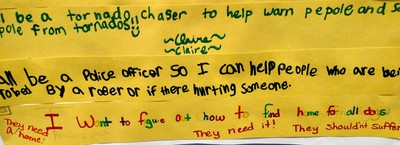 l be a tornado chaser to help warn pepole and sa
pole from tornados!!
~Claire~
~Claire~
ll be a Police officer SO I can help people who are bei
robed By a rober or if there hurting Someone.
I Want to figure out how to find home for all dogs
They need a home!
They need it!
They Should'nt Suffer